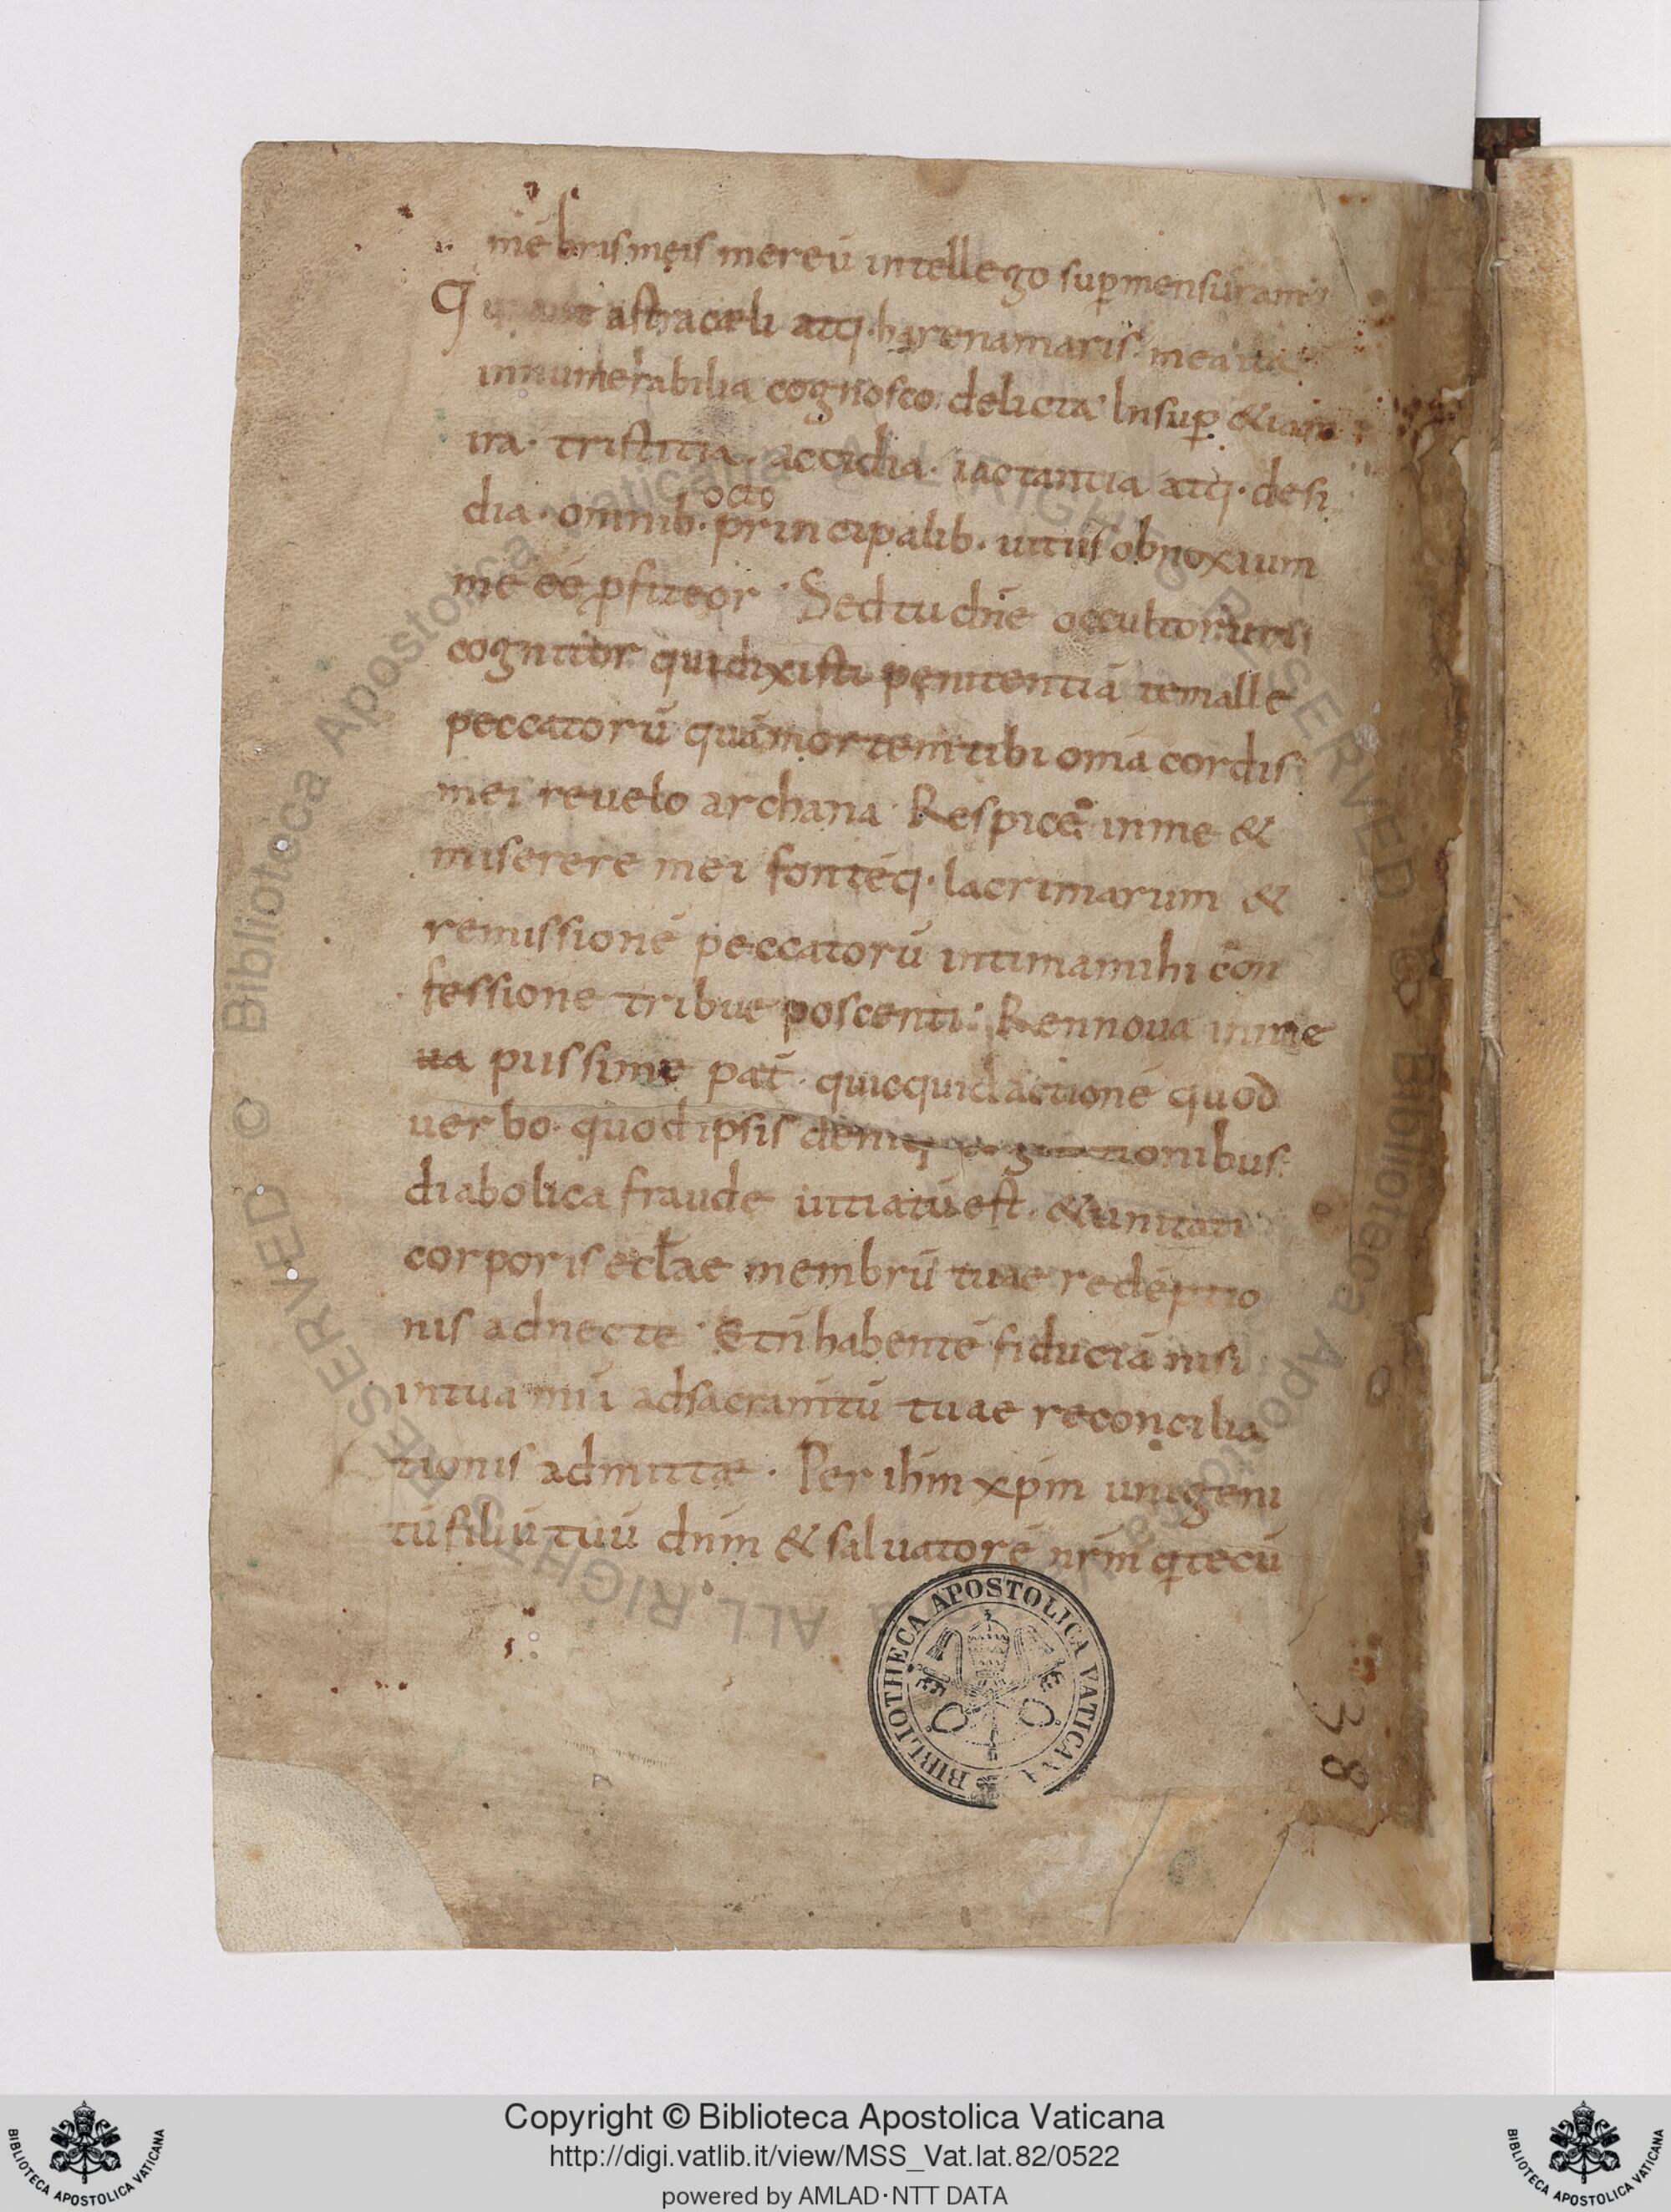 mēbris meis me reū intellego sup mensuram
astra caeli atq· harenam maris· mea ita
innumerabilia cognosco delicta· Insup &iam
ira· tristitia· accidia· iactantia atq· desi
octo
dia· omnib· principalib· uitiis obnoxium
me eē pfiteor· Sed tu dn̄e occultorum
cognitor qui dixisti penitentiā te malle
peccatorū quā mortem tibi om̄a cordis
mei reuelo archana· Respice in me &
miserere mei fontēq· lacrimarum &
remissionē peccatorū intima mihi con
fessione tribue poscenti· Rennoua in me
ua piissime pat̄· quicquid actione quod
uerbo· quod ipsis deniq; cogitationibus
diabolica fraude uitiatū est· & unitati
corporis eccl̄ae membrū tuae redēptio
nis adnecte· Et n̄ habentē fiduciā nisi
in tua mīa ad sacram̄tū tuae reconcilia
tionis admitte· Per ihm xpm unigeni
tū filiū tuū dnm & saluatorē nrm q tecū
38
BIBLIOTHECA APOSTOLICA VATICANA
© Biblioteca Apostolica Vaticana ALL RIGHTS RESERVED
© Biblioteca Apostolica Vaticana ALL RIGHTS RESERVED
Copyright © Biblioteca Apostolica Vaticana
http://digi.vatlib.it/view/MSS_Vat.lat.82/0522
powered by AMLAD·NTT DATA
BIBLIOTECA APOSTOLICA VATICANA
BIBLIOTECA APOSTOLICA VATICANA